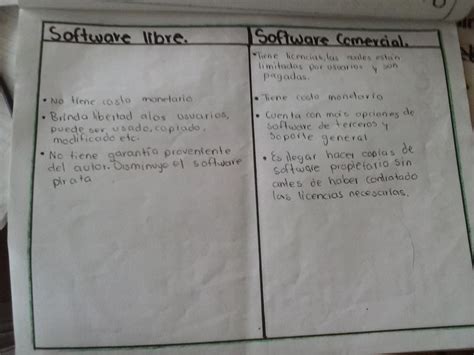 Software libre.
• No tiene costo monetario
• Brinda libertad a los usuarios,
puede ser, usado, copiado,
modificado etc.
• No tiene garantía proveniente
del autor. Disminuye el software
pirata
Software Comercial.
• Tiene licencias, las cuales están
limitadas por usuarios y son
pagadas.
• Tiene costo monetario
• Cuenta con más opciones de
software de terceros y
soporte general
• Es ilegar hacer copias de
software propietario sin
antes de haber contratado
las licencias necesarias.